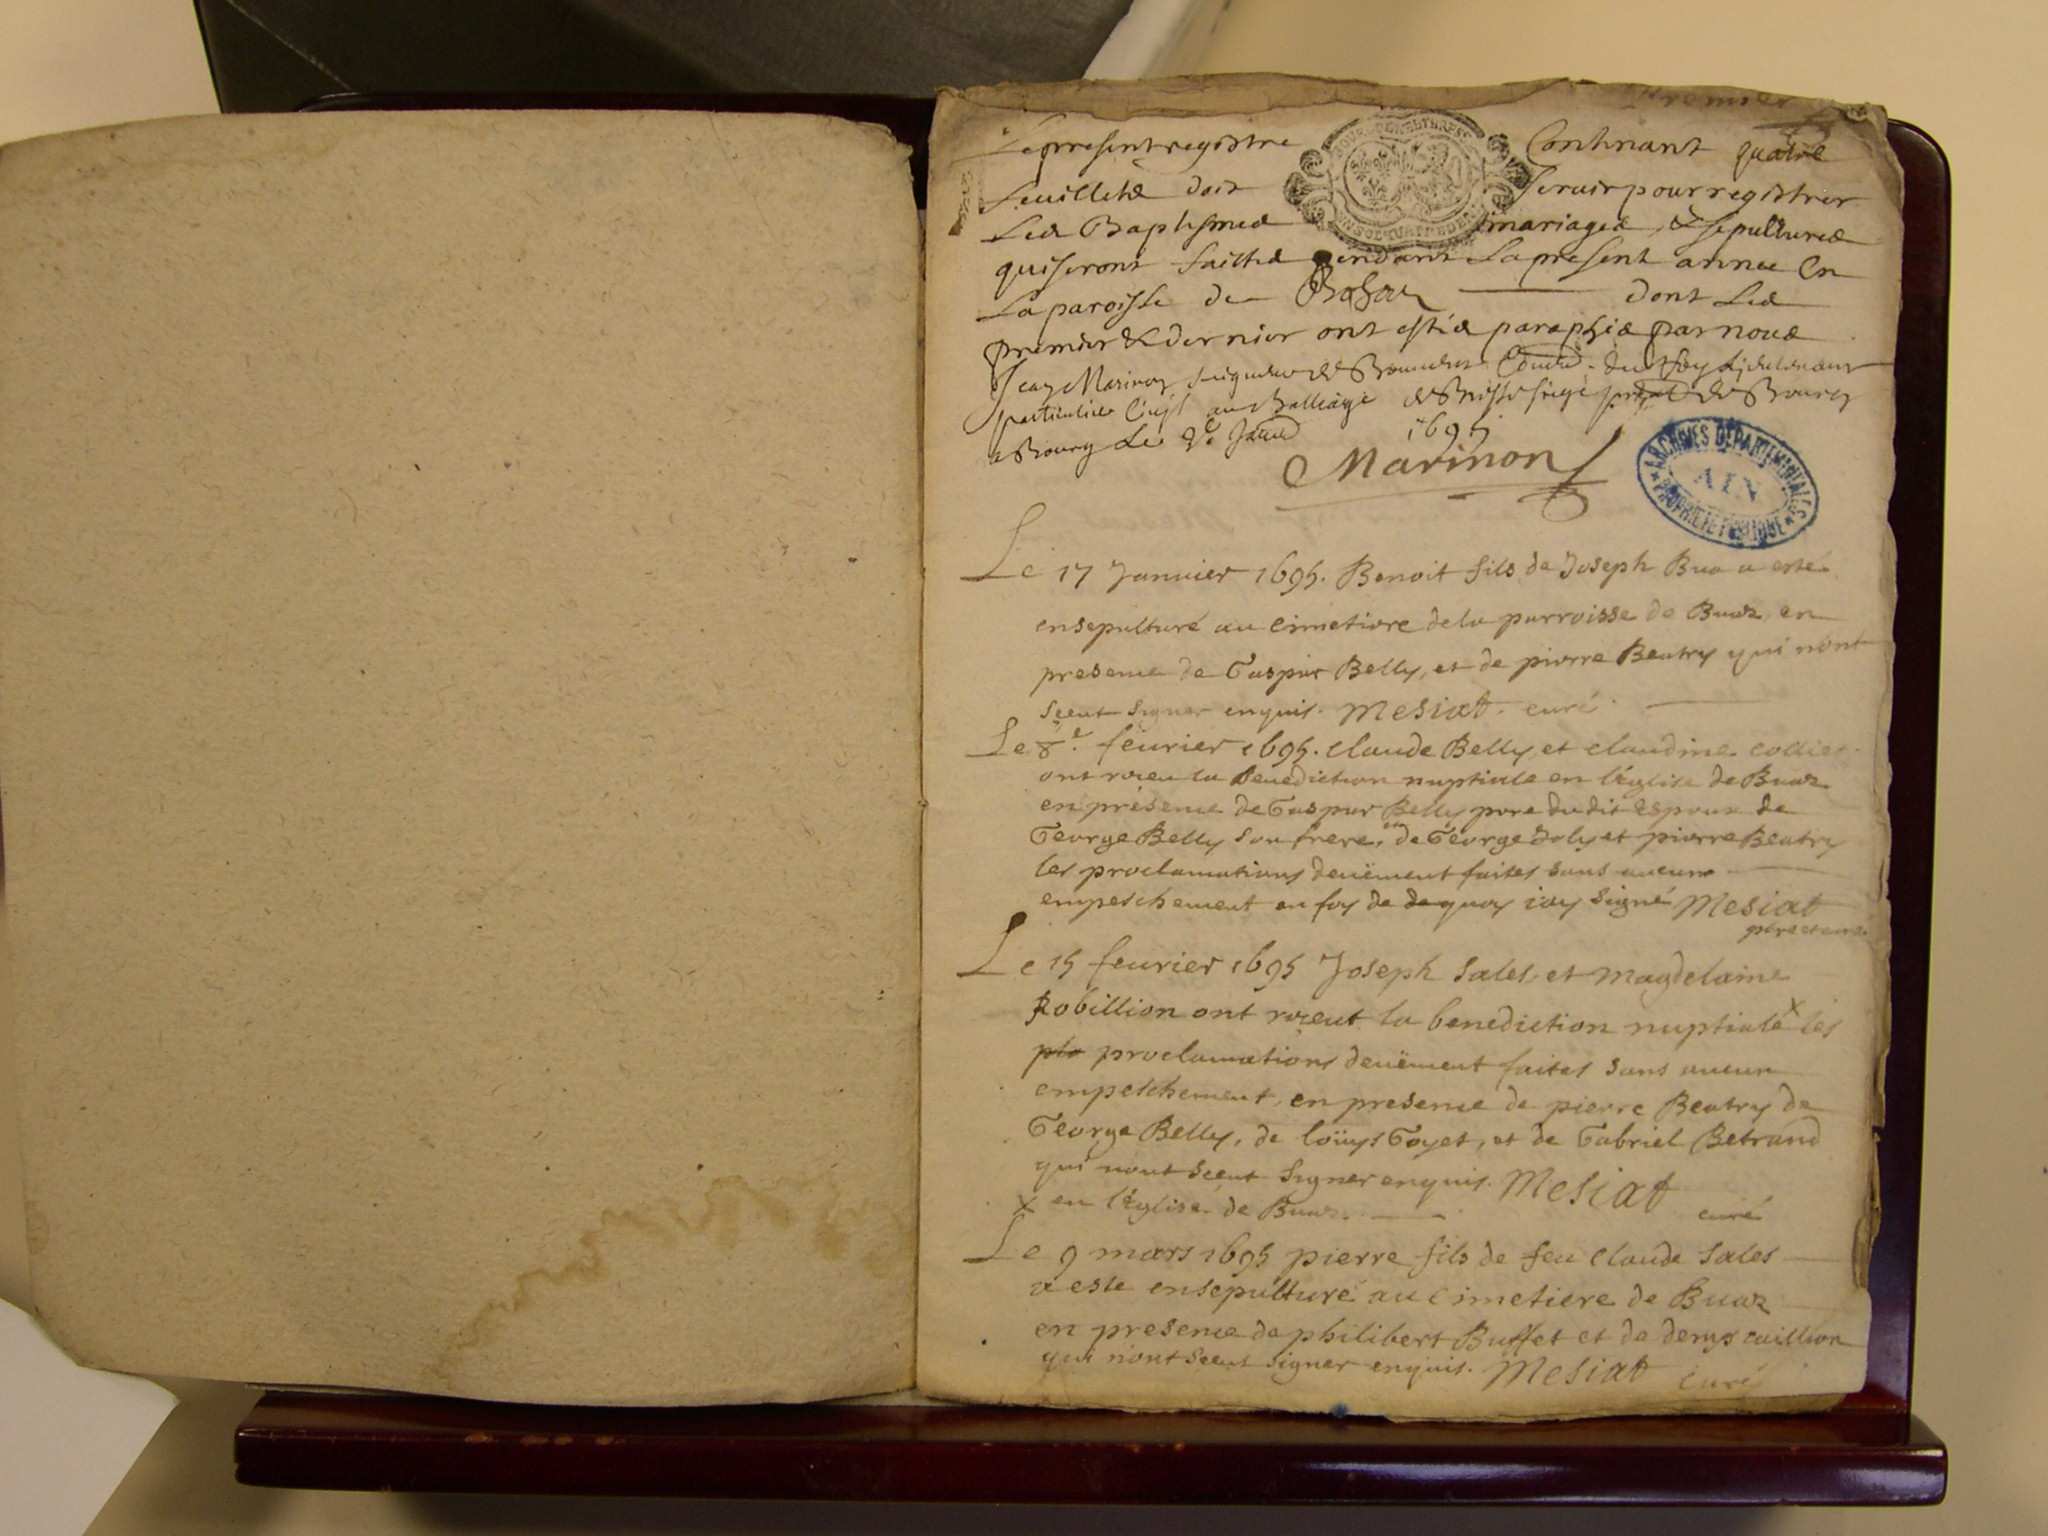 Premier
Le present registre Contenant quatre
feuilletz doit servir pour registrer
Les Baptesmes mariages, & sepultures
qui seront faittes pendant La present annee En
La paroisse de dont Les
premier & dernier ont estés paraphés par nous
Jean Marinon seigneur de Lieutenant
particulier Civil au Balliage de Bresse siege de Bourg
a Bourg Le 1695
Marinon
ARCHIVES DEPARTEMENTALES
AIN
PROPRIETE PUBLIQUE
Le 17 Janvier 1695. Benoit fils de Joseph Bua a esté
ensepulturé au cimetiere de la parroisse de Buaz, en
presence de Gaspar Belly, et de pierre Beatry qui n'ont
sceut signer enquis. Mesiat. curé.
Le 8.e feurier 1695. claude Belly, et claudine collier
ont receu la Benediction nuptiale en l'église de Buaz
en présence de Gaspar Belly pere du dit Espoux de
George Belly son frere, de George Joly et pierre Beatry
les proclamations deuëment faites sans aucune
empeschement en foy de de quoy i'ay signé Mesiat
Le 15 feurier 1695 Joseph Sales, et magdelaine
Robillion ont receut la benediction nuptiale x les
pla proclamations deuëment faites sans aucun
empeschement, en presence de pierre Beatry de
George Belly, de loüys Goyet, et de Gabriel Betrand
qui n'ont sceut signer enquis. Mesiat curé
x en l'église de Buaz.
Le 9 mars 1695 pierre fils de feu claude Sales
a este ensepulturé au cimetiere de Buaz
en presence de philibert Buffet et de denys caillion
qui n'ont sceut signer enquis. Mesiat curé